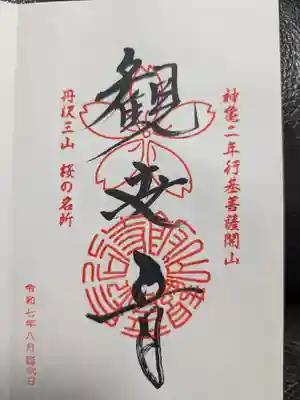 神亀二年行基菩薩開山
観世音
丹沢三山 桜の名所
令和七年八月吉日